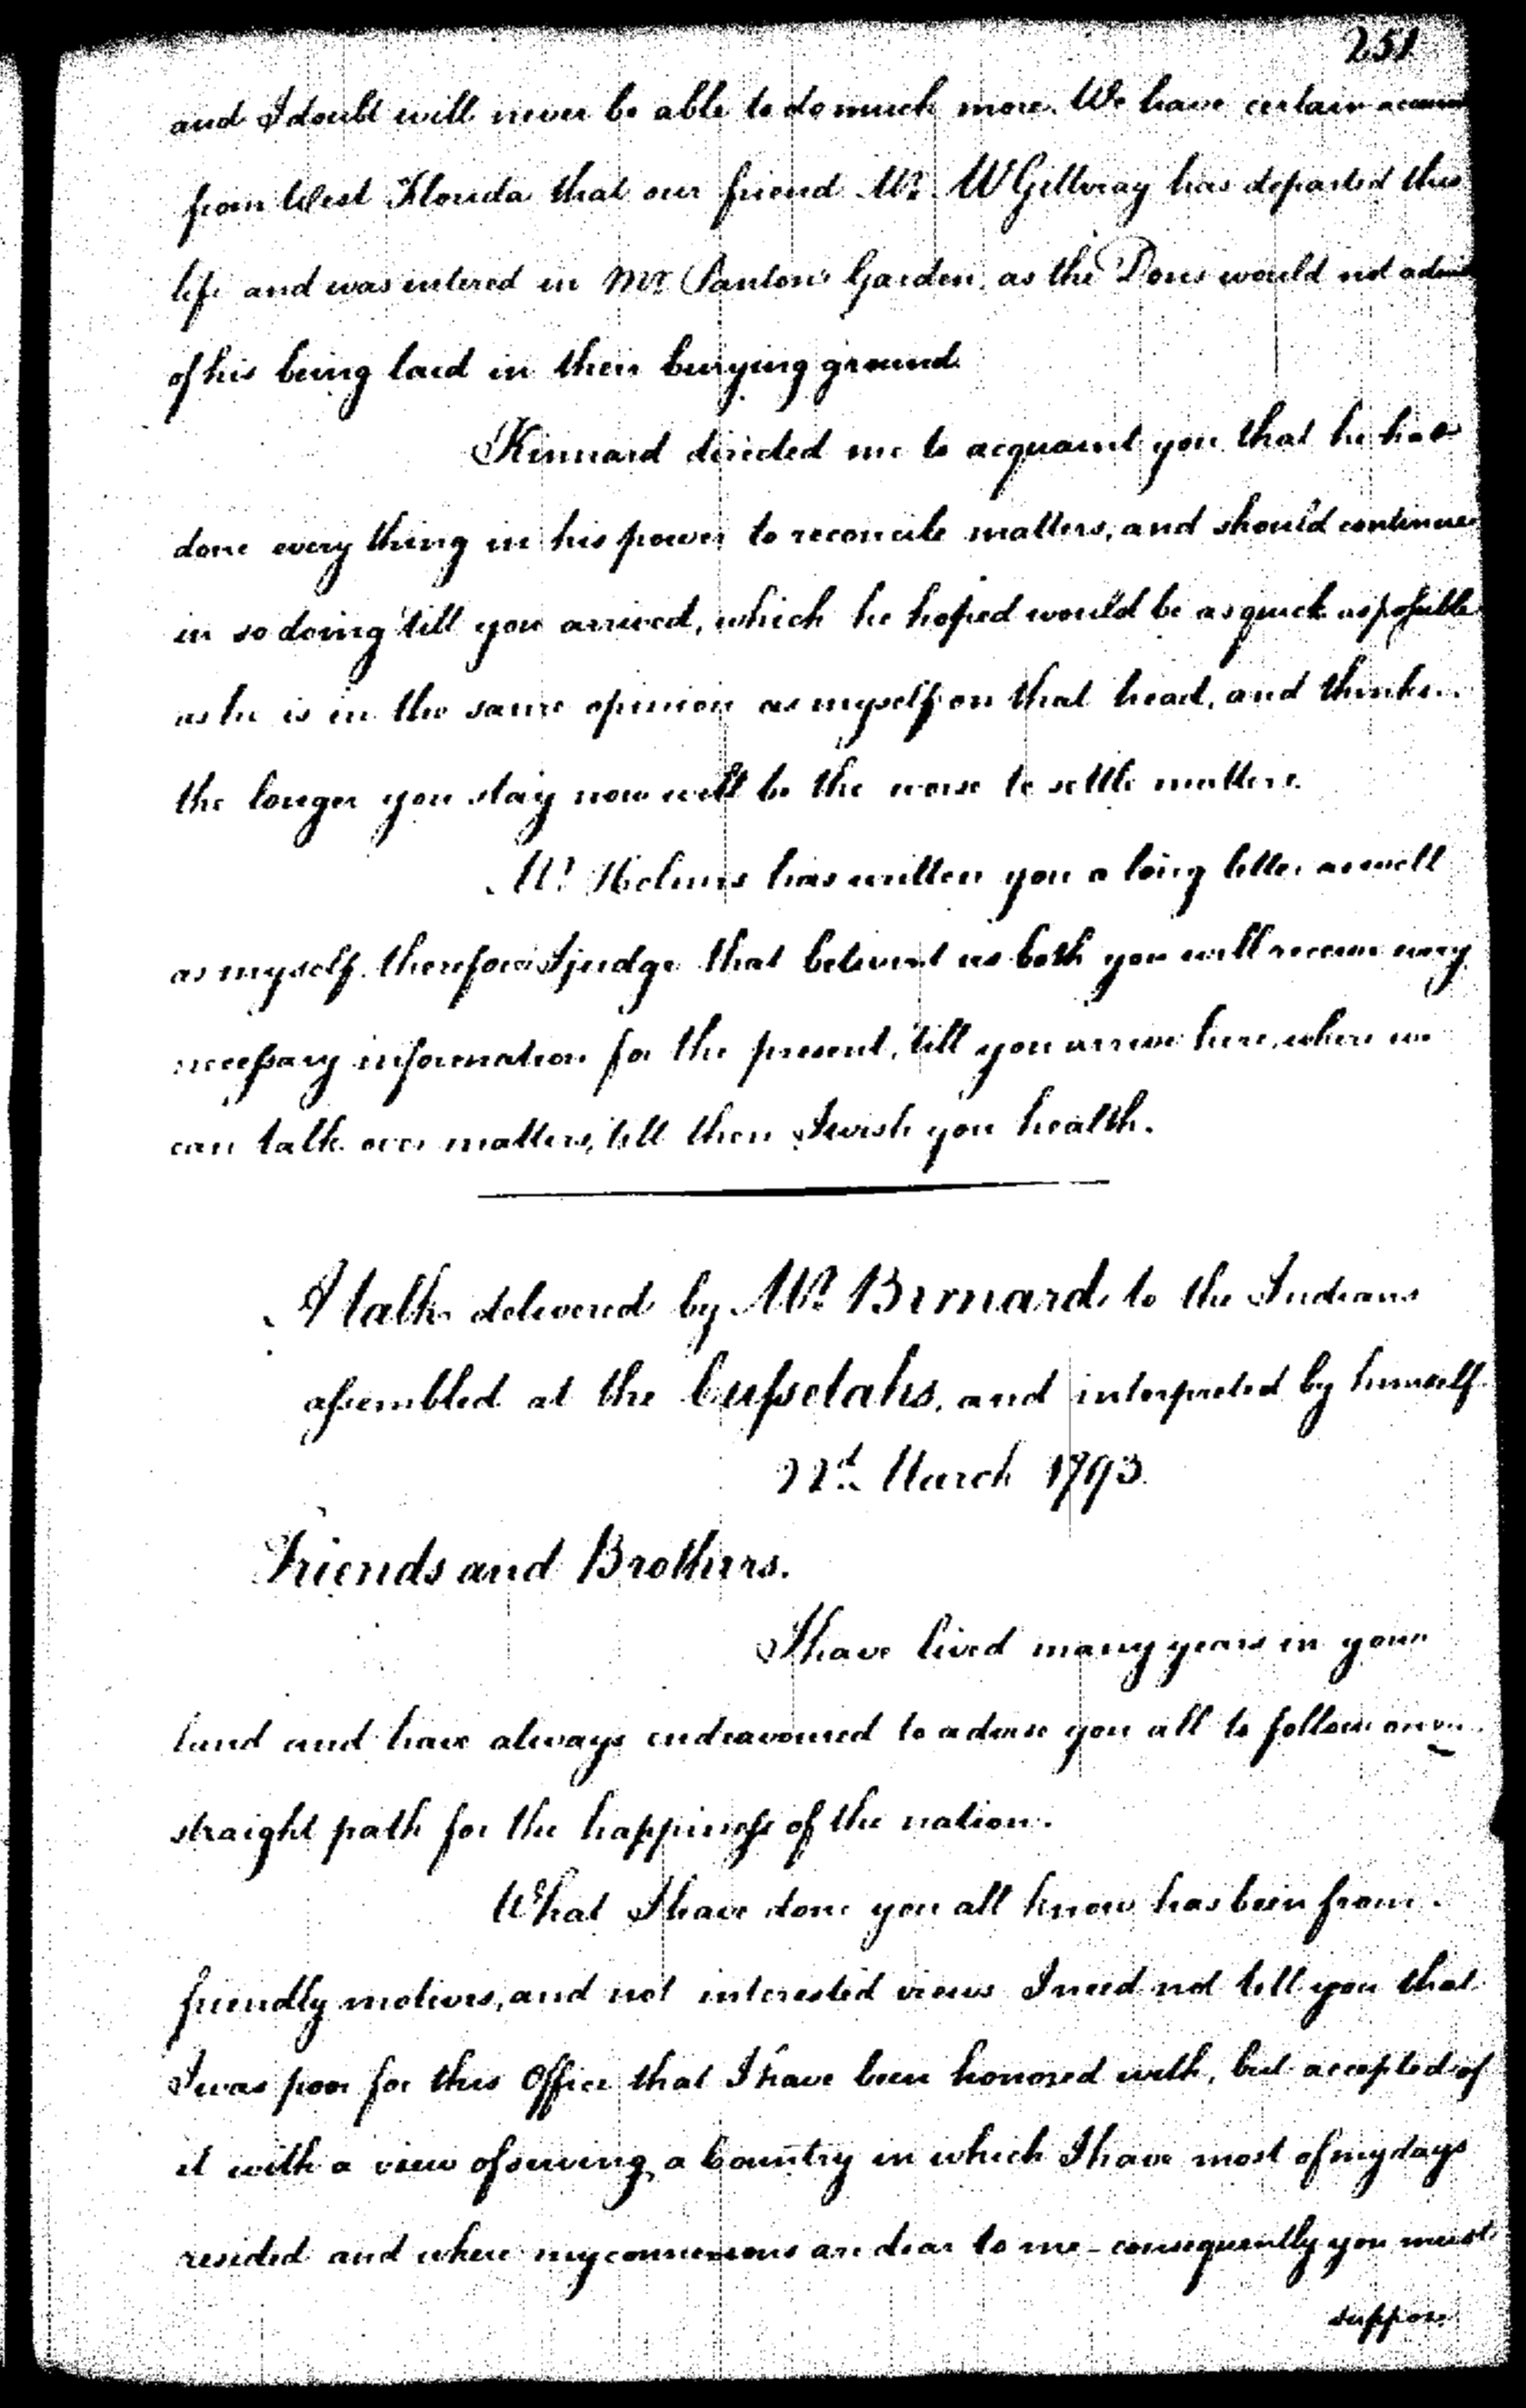 251
and I doubt will never be able to do much more. We have certain
from West Florida that our friend Mr. McGillvray has departed this
life and was intered in Mr. Panton's Garden, as the Dons would not admit
of his being laid in their burying ground.
Kinnard directed me to acquaint you that he has
done every thing in his power to reconcile matters, and should continue
in so doing till you arrived, which he hoped would be as quick as possible
as he is in the same opinion as myself on that head, and thinks
the longer you stay now will be the worse to settle matters.
Mr. Holmes has written you a long letter as well
as myself. therefore I judge that betwixt us both you will receive every
necessary information for the present, till you arrive here, where we
can talk over matters, till then I wish you health.
A talk delivered by Mr. Bernard to the Indians
assembled at the Cussetahs, and interpreted by himself.
22d. March 1793.
Friends and Brothers.
I have lived many years in your
land and have always endeavoured to advise you all to follow
straight path for the happiness of the nation.
What I have done you all know has been from
friendly motives, and not interested views I need not tell you that
I was poor for this Office that I have been honored with, but accepted of
it with a view of serving a Country in which I have most of my days
resided and where my connexions are dear to me - consequently you must
suppose